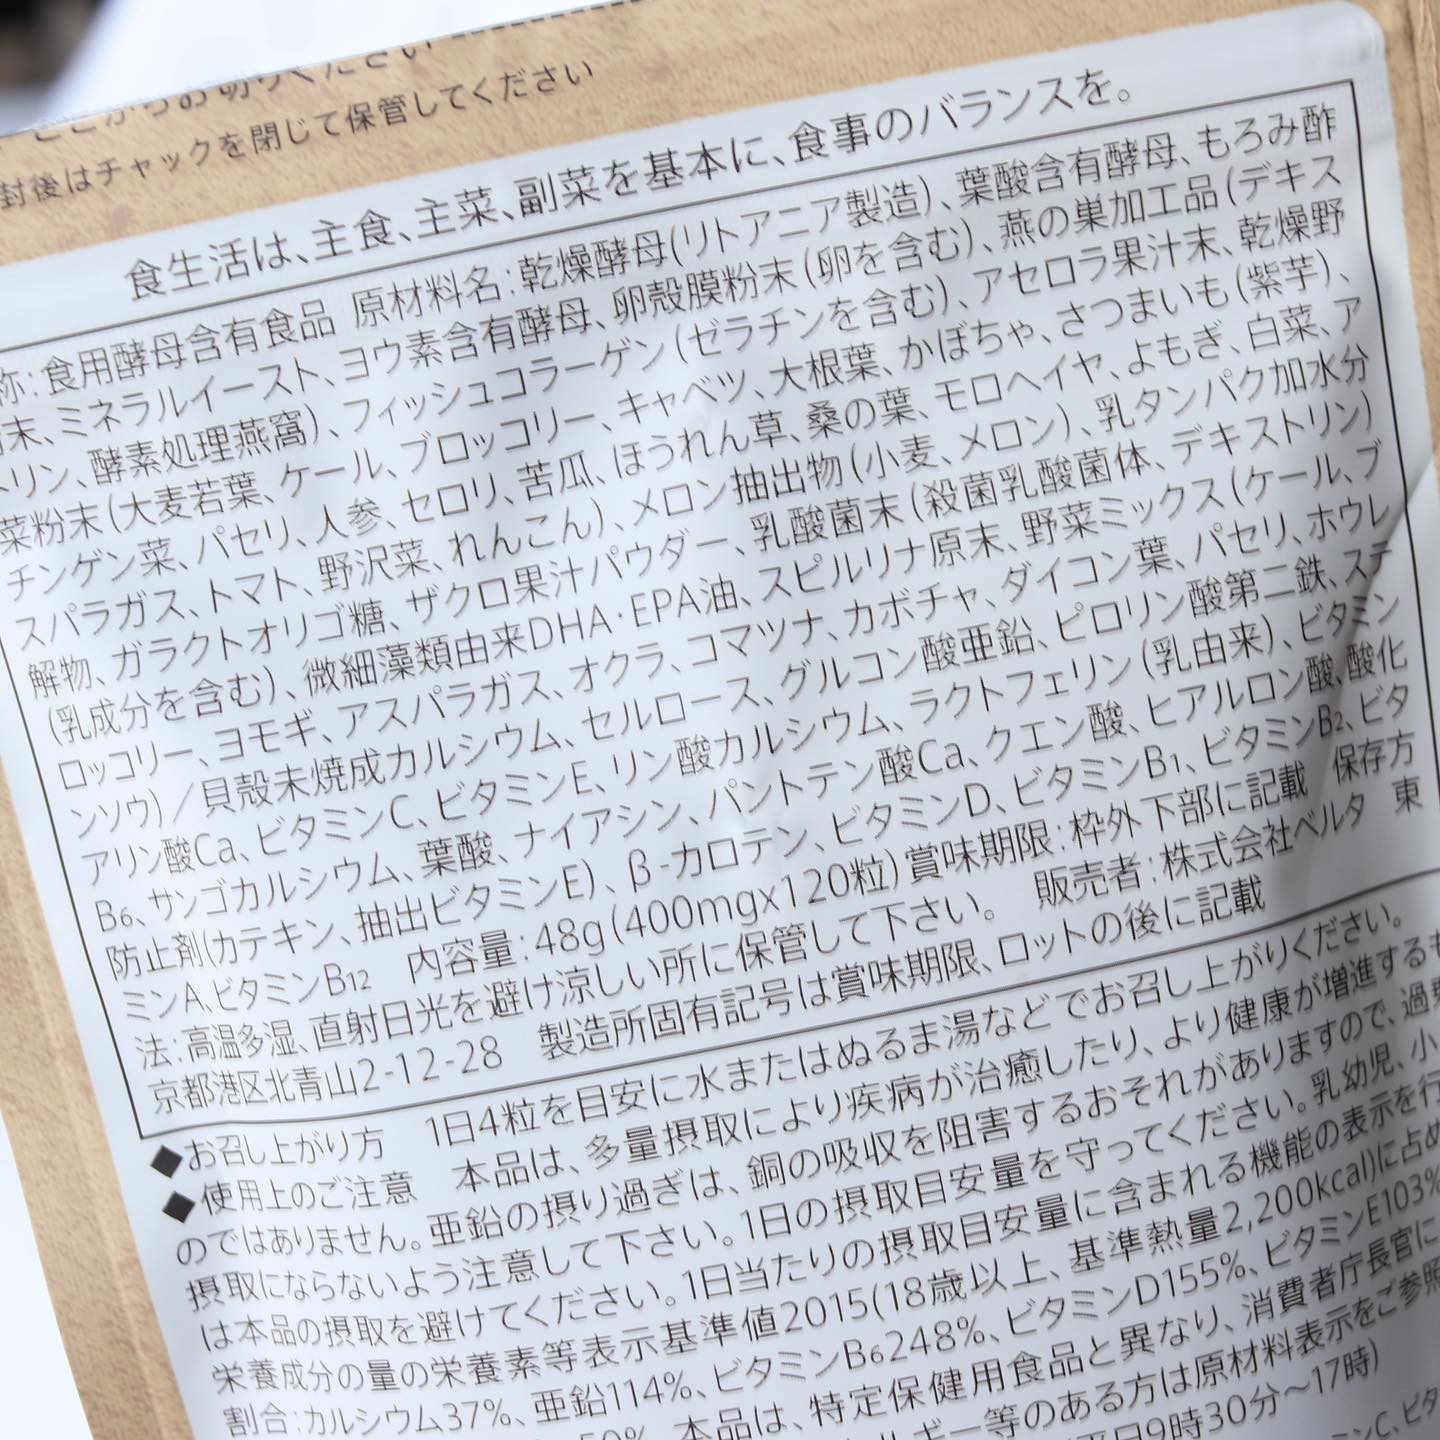 ここからお切りください
封後はチャックを閉じて保管してください
食生活は、主食、主菜、副菜を基本に、食事のバランスを。
称:食用酵母含有食品 原材料名:乾燥酵母(リトアニア製造)、葉酸含有酵母、もろみ酢
末、ミネラルイースト、ヨウ素含有酵母、卵殻膜粉末(卵を含む)、燕の巣加工品(デキス
トリン、酵素処理燕窩)、フィッシュコラーゲン(ゼラチンを含む)、アセロラ果汁末、乾燥野
菜粉末(大麦若葉、ケール、ブロッコリー、キャベツ、大根葉、かぼちゃ、さつまいも(紫芋)、
チンゲン菜、パセリ、人参、セロリ、苦瓜、ほうれん草、桑の葉、モロヘイヤ、よもぎ、白菜、ア
スパラガス、トマト、野沢菜、れんこん)、メロン抽出物(小麦、メロン)、乳タンパク加水分
解物、ガラクトオリゴ糖、ザクロ果汁パウダー、乳酸菌末(殺菌乳酸菌体、デキストリン)
(乳成分を含む)、微細藻類由来DHA・EPA油、スピルリナ原末、野菜ミックス(ケール、ブ
ロッコリー、ヨモギ、アスパラガス、オクラ、コマツナ、カボチャ、ダイコン葉、パセリ、ホウレ
ンソウ)/貝殻末焼成カルシウム、セルロース、グルコン酸亜鉛、ピロリン酸第二鉄、ステ
アリン酸Ca、ビタミンC、ビタミンE、リン酸カルシウム、ラクトフェリン(乳由来)、ビタミン
B6、サンゴカルシウム、葉酸、ナイアシン、パントテン酸Ca、クエン酸、ヒアルロン酸、酸化
防止剤(カテキン、抽出ビタミンE)、β-カロテン、ビタミンD、ビタミンB1、ビタミンB2、ビタ
ミンA、ビタミンB12 内容量:48g(400mgx120粒)賞味期限:枠外下部に記載 保存方
法:高温多湿、直射日光を避け涼しい所に保管して下さい。 販売者:株式会社ベルタ 東
京都港区北青山2-12-28 製造所固有記号は賞味期限、ロットの後に記載
◆お召し上がり方 1日4粒を目安に水またはぬるま湯などでお召し上がりください。
◆使用上のご注意 本品は、多量摂取により疾病が治癒したり、より健康が増進するも
のではありません。亜鉛の摂り過ぎは、銅の吸収を阻害するおそれがありますので、過剰
摂取にならないよう注意して下さい。1日の摂取目安量を守ってください。乳幼児、小
は本品の摂取を避けてください。1日当たりの摂取目安量に含まれる機能の表示を行
栄養成分の量の栄養素等表示基準値2015(18歳以上、基準熱量2,200kcal)に占め
割合:カルシウム37%、亜鉛114%、ビタミンB6248%、ビタミンD155%、ビタミンE103%
50%、本品は、特定保健用食品と異なり、消費者庁長官に
ルギー等のある方は原材料表示をご参照
平日9時30分~17時)